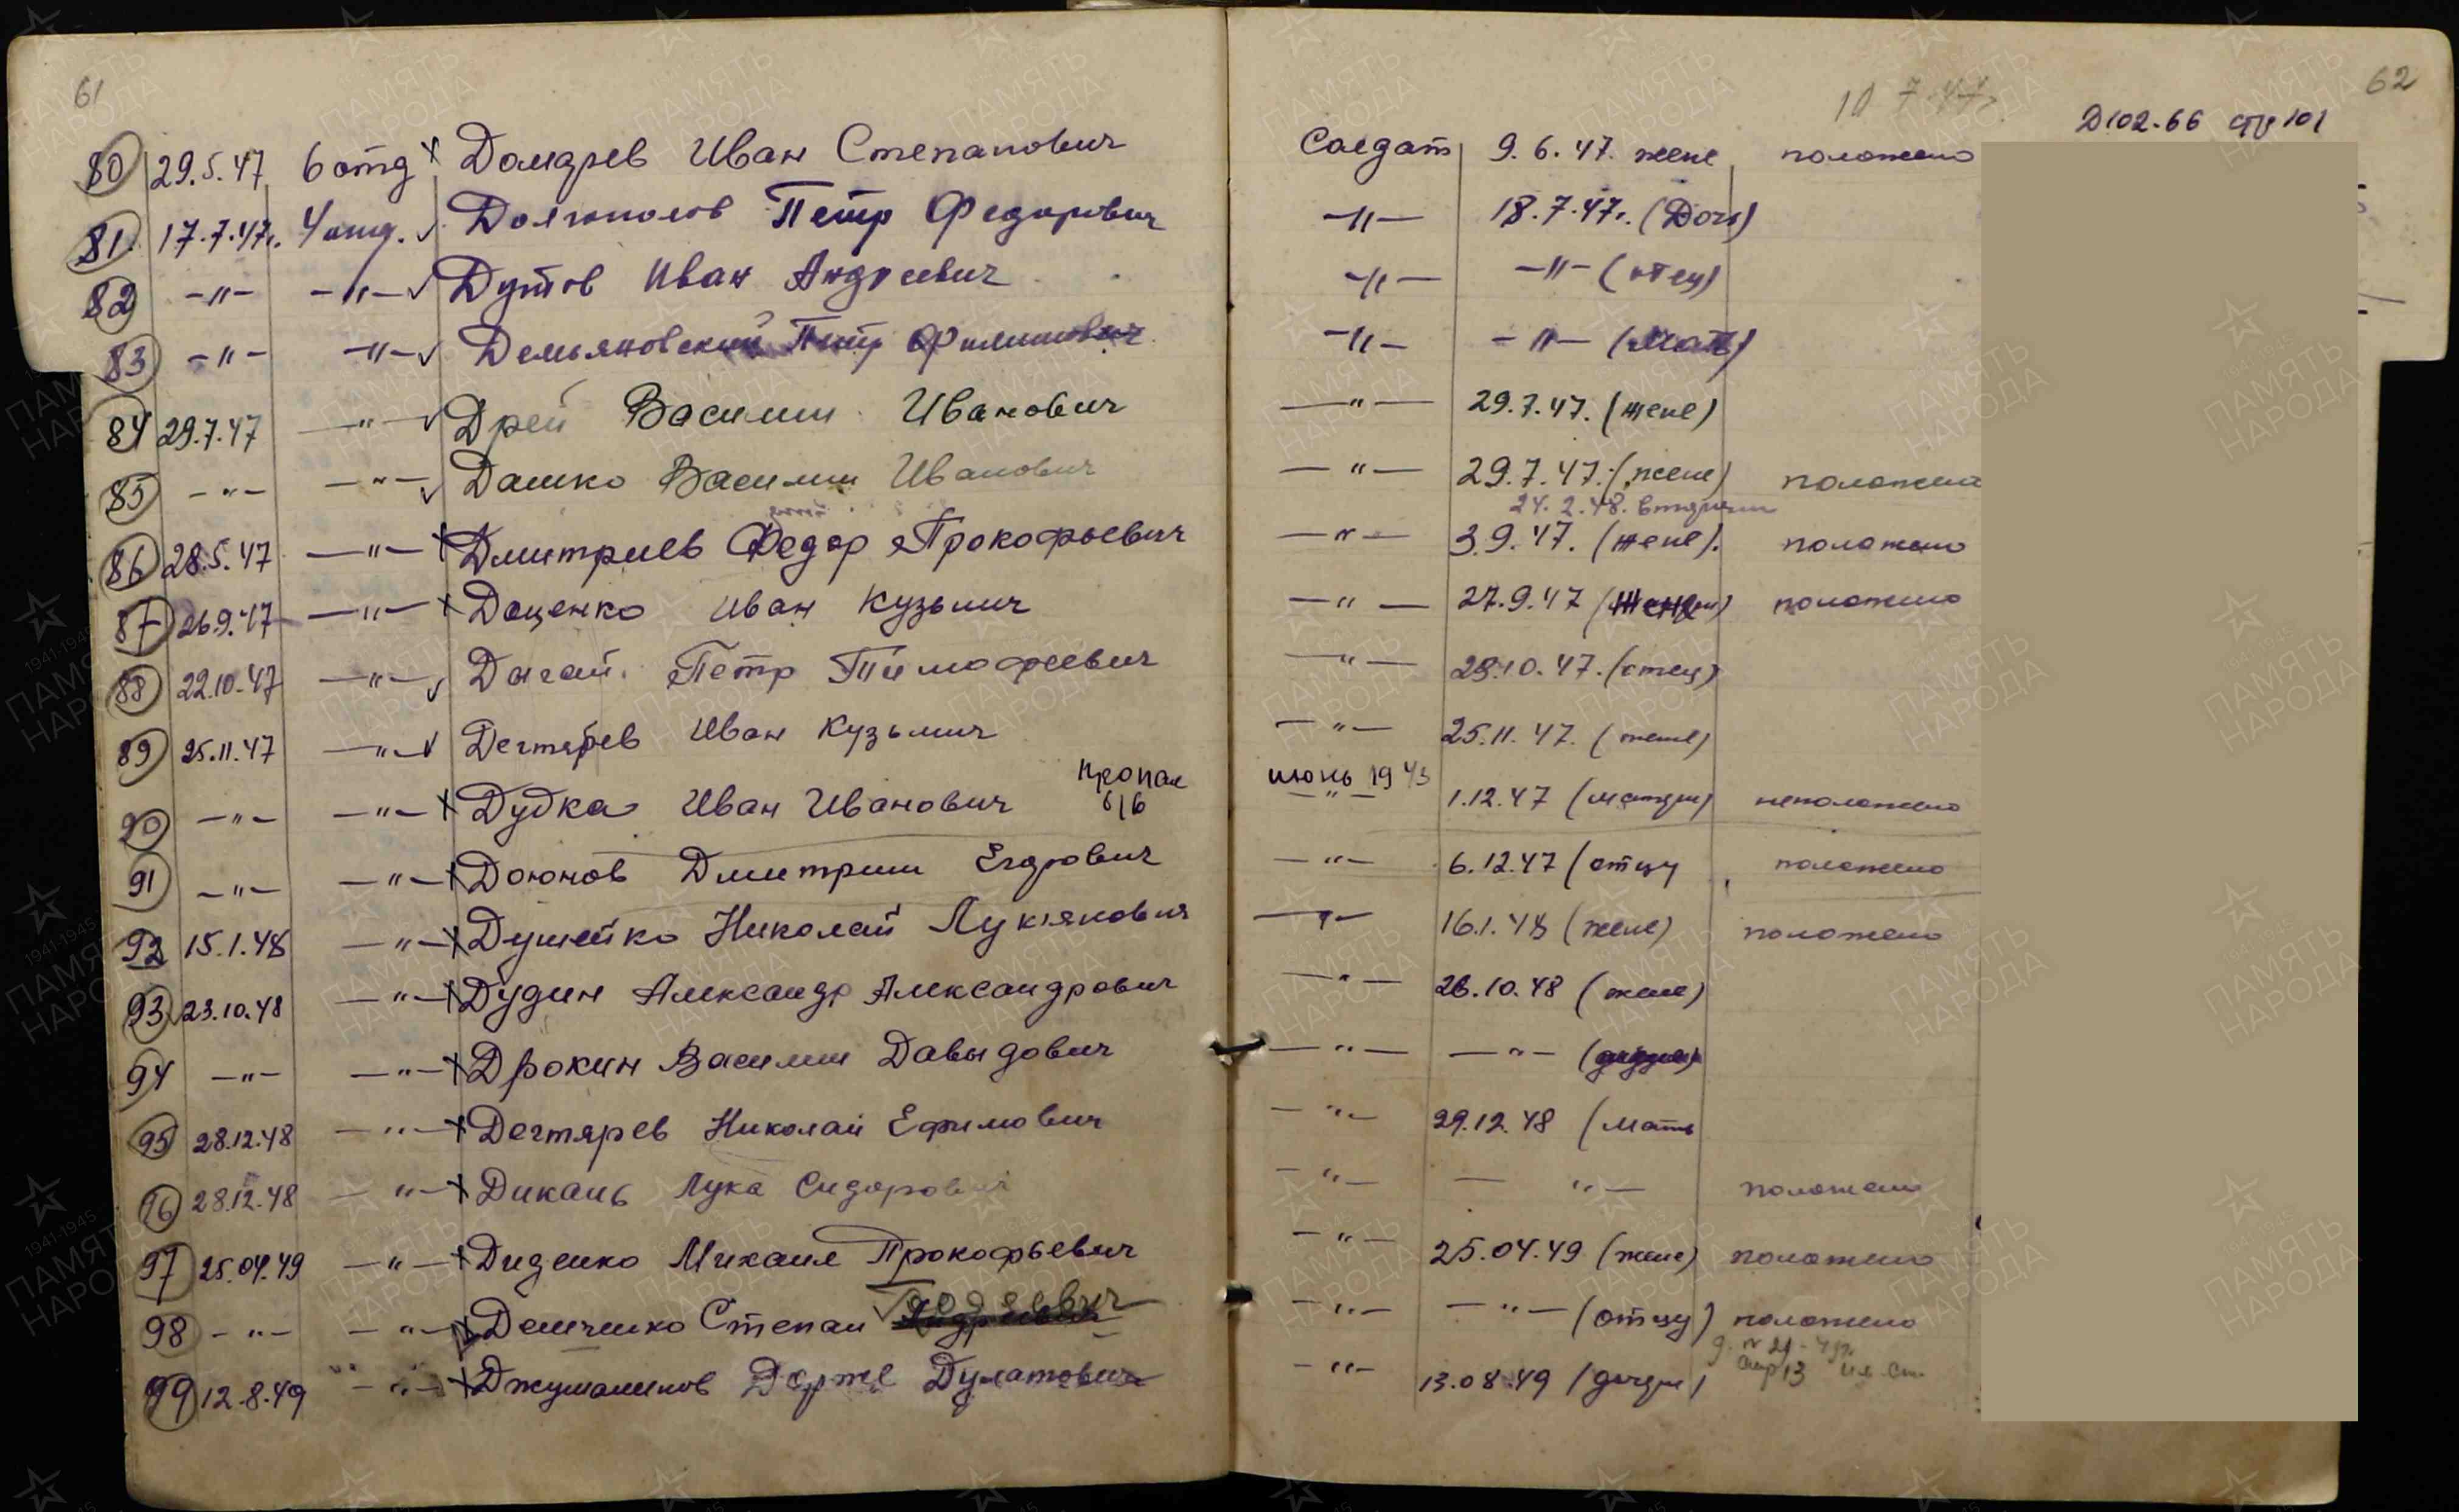 61
62
10 7.47г.
Д102-66 стр 101
80 29.5.47 6 отд х Домарев Иван Степанович Солдат 9.6.47. жене положено
81. 17.7.47г. 4 отд. ✓ Долгополов Петр Федорович -"- 18.7.47г. (Доч)
82 -"- -"- ✓ Дутов Иван Андреевич -"- -"- (отец)
83 -"- -"- ✓ Демьяновский Петр Филиппович -"- -"- (Мать)
84 29.7.47 -"- ✓ Дрей Василий Иванович -"- 29.7.47. (жене)
85 -"- -"- ✓ Дашко Василий Иванович -"- 29.7.47. (жене) положено
24.2.48. вторично
86 28.5.47 -"- х Дмитриев Федор Прокофьевич -"- 3.9.47. (жене). положено
87 26.9.47 -"- х Доценко Иван Кузьмич -"- 27.9.47 положено
88 22.10.47 -"- ✓ Дыгай Петр Тимофеевич -"- 23.10.47. (отец)
89 25.11.47 -"- ✓ Дегтярев Иван Кузьмич -"- 25.11.47. (жене)
пропал июнь 1943
90 -"- -"- х Дудка Иван Иванович б/в -"- 1.12.47 (матери) неположено
91 -"- -"- х Доюнов Дмитрий Егорович -"- 6.12.47 (отцу положено
92 15.1.48 -"- х Душейко Николай Лукянович -"- 16.1.48 (жене) положено
93 23.10.48 -"- х Дудин Александр Александрович -"- 26.10.48 (жене)
94 -"- -"- х Дрокин Василий Давыдович -"- -"-
95 28.12.48 -"- х Дегтярев Николай Ефимович -"- 29.12.48 (Мать
96 28.12.48 -"- х Дикань Лука Сидорович -"- -"- положено
97 25.04.49 -"- х Диденко Михаил Прокофьевич -"- 25.04.49 (жене) положено
Гордеевич
98 -"- -"- х Демченко Степан Андреевич -"- -"- (отцу) положено
стр 13
99 12.8.49 -"- х Джумалинов Дорже Дулатович -"- 13.08.49 (дочери)
ПАМЯТЬ НАРОДА
1941-1945